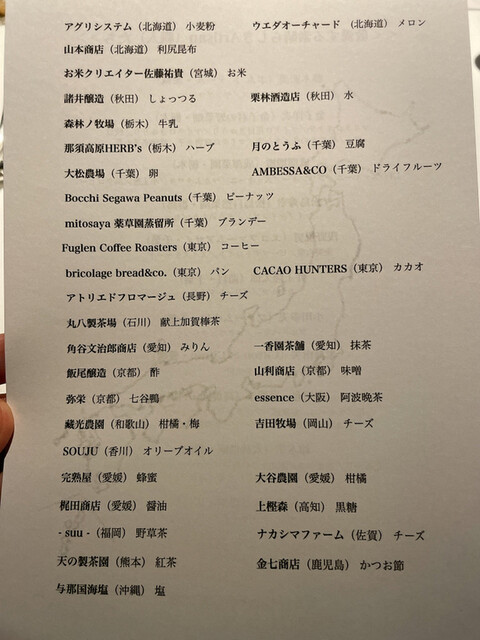 アグリシステム（北海道） 小麦粉 ウエダオーチャード （北海道） メロン
山本商店（北海道） 利尻昆布
お米クリエイター佐藤祐貴（宮城） お米
諸井醸造（秋田） しょっつる 栗林酒造店（秋田） 水
森林ノ牧場（栃木） 牛乳
那須高原HERB's（栃木） ハーブ 月のとうふ（千葉） 豆腐
大松農場（千葉） 卵 AMBESSA&CO（千葉） ドライフルーツ
Bocchi Segawa Peanuts（千葉） ピーナッツ
mitosaya 薬草園蒸留所（千葉） ブランデー
Fuglen Coffee Roasters（東京） コーヒー
bricolage bread&co.（東京） パン CACAO HUNTERS（東京） カカオ
アトリエドフロマージュ（長野） チーズ
丸八製茶場（石川） 献上加賀棒茶
角谷文治郎商店（愛知） みりん 一香園茶舗（愛知） 抹茶
飯尾醸造（京都） 酢 山利商店（京都） 味噌
弥栄（京都） 七谷鴨 essence（大阪） 阿波晩茶
藏光農園（和歌山） 柑橘・梅 吉田牧場（岡山） チーズ
SOUJU（香川） オリーブオイル
完熟屋（愛媛） 蜂蜜 大谷農園（愛媛） 柑橘
梶田商店（愛媛） 醤油 上樫森（高知） 黒糖
- suu -（福岡） 野草茶 ナカシマファーム（佐賀） チーズ
天の製茶園（熊本） 紅茶 金七商店（鹿児島） かつお節
与那国海塩（沖縄） 塩